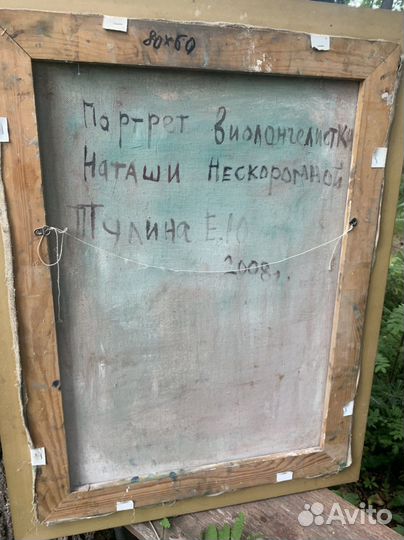 80×60
Портрет виолончелистки
Наташи Нескоромной
Тулина Е.Ю
2008г.
Avito